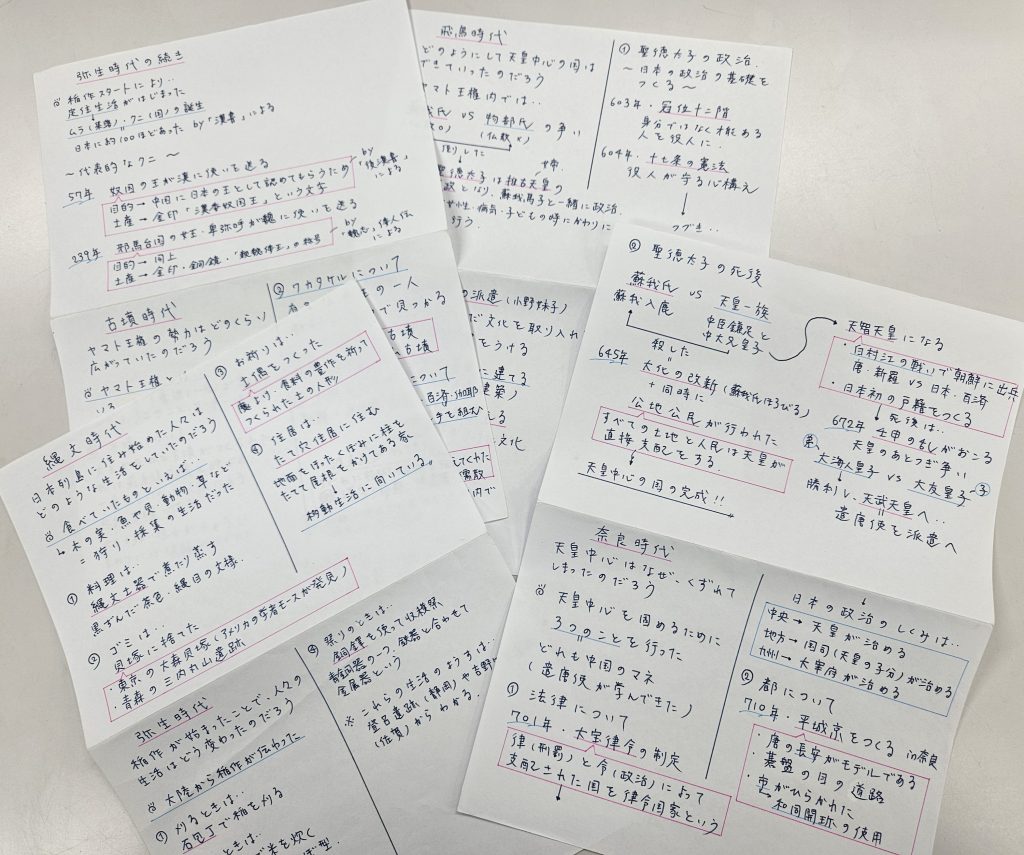 弥生時代の続き
稲作スタートにより‥
定住生活がはじまった
ムラ(集落)・クニ(国)の誕生
日本に約100ほどあった by「漢書」による
〜代表的なクニ〜
57年 奴国の王が漢に使いを送る
by「後漢書」による
目的→中国に日本の王として認めてもらうため
土産→金印「漢委奴国王」という文字
239年 邪馬台国の女王・卑弥呼が魏に使いを送る
by「魏志」倭人伝による
目的→同上
土産→金印・銅鏡・「親魏倭王」の称号
古墳時代
ヤマト王権の勢力はどのくらい
広がっていたのだろう
ヤマト王権と
いる
② ワカタケルについて
の一人
で見つかる
古墳
古墳
について
百済・伽耶
手を組む
飛鳥時代
どのようにして天皇中心の国は
できていったのだろう
ヤマト王権内では‥
我氏 VS 物部氏 の争い
(仏教×)
倒した
聖徳太子は推古天皇の
政となり、蘇我馬子と一緒に政治。
女性・病気・子どもの時にかわりに
行う。
① 聖徳太子の政治.
〜日本の政治の基礎を
つくる〜
603年・冠位十二階
身分ではなく才能ある
人を役人に.
604年・十七条の憲法
役人が守る心構え
つづき‥
の派遣(小野妹子)
だ文化を取り入れ
をうける
に建てる
建築)
る
文化
してくれた
② 聖徳太子の死後
蘇我氏 VS 天皇一族
蘇我入鹿
中臣鎌足と
中大兄皇子
殺した
645年 大化の改新(蘇我氏ほろびる)
+同時に
公地公民が行われた
すべての土地と人民は天皇が
直接支配をする.
天皇中心の国の完成!!
天智天皇になる
・白村江の戦いで朝鮮に出兵
唐・新羅 VS 日本・百済
・日本初の戸籍をつくる
死後は‥
672年 壬申の乱がおこる
天皇のあとつぎ争い
弟 大海人皇子 VS 大友皇子 子
勝利し、天武天皇へ‥
遣唐使を派遣へ
縄文時代
日本列島に住み始めた人々は
どのような生活をしていたのだろう
食べていたものといえば‥
木の実・魚や貝・動物・草など
=狩り・採集の生活だった
① 料理は‥
縄文土器で煮たり蒸す
黒ずんだ茶色・縄目の文様.
② ゴミは‥
貝塚に捨てた
・東京の大森貝塚(アメリカの学者モースが発見)
・青森の三内丸山遺跡
③ お祈りは‥
土偶をつくった
魔よけ・食料の豊作を祈って
つくられた土の人形
④ 住居は‥
たて穴住居に住む
地面をほったくぼみに柱を
たてて屋根をかりてある家
移動生活に向いている
弥生時代
稲作が始まったことで、人々の
生活はどう変わったのだろう
大陸から稲作が伝わった
① 刈るときは‥
石包丁で稲を刈る
ときは‥
で米を炊く
型.
④ 祭りのときは‥
銅鐸を使って収穫祭
青銅器の一つ。鉄器と合わせて
金属器という
※ これらの生活のようすは‥
登呂遺跡(静岡)や吉野
(佐賀)からわかる.
奈良時代
天皇中心はなぜ、くずれて
しまったのだろう
天皇中心を固めるために
3つのことを行った
どれも中国のマネ
(遣唐使が学んできた)
① 法律について
701年・大宝律令の制定
律(刑罰)と令(政治)によって
支配された国を律令国家という
日本の政治のしくみは‥
中央→天皇が治める
地方→国司(天皇の子分)が治める
九州→大宰府が治める
② 都について
710年・平城京をつくる in奈良
・唐の長安がモデルである
・碁盤の目の道路
・市がひらかれた
和同開珎の使用